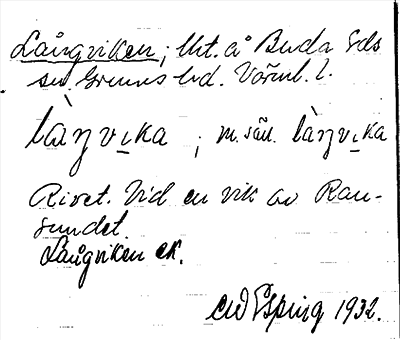 Långviken; lht. å Buda Eds
sn. Grums hd. Värml. l.
làŋvi̠ka ; m. säll. làŋvi̠ka
Rivet. Vid en vik av Ran-
sundet.
Långviken ek.
CW Esping 1932.